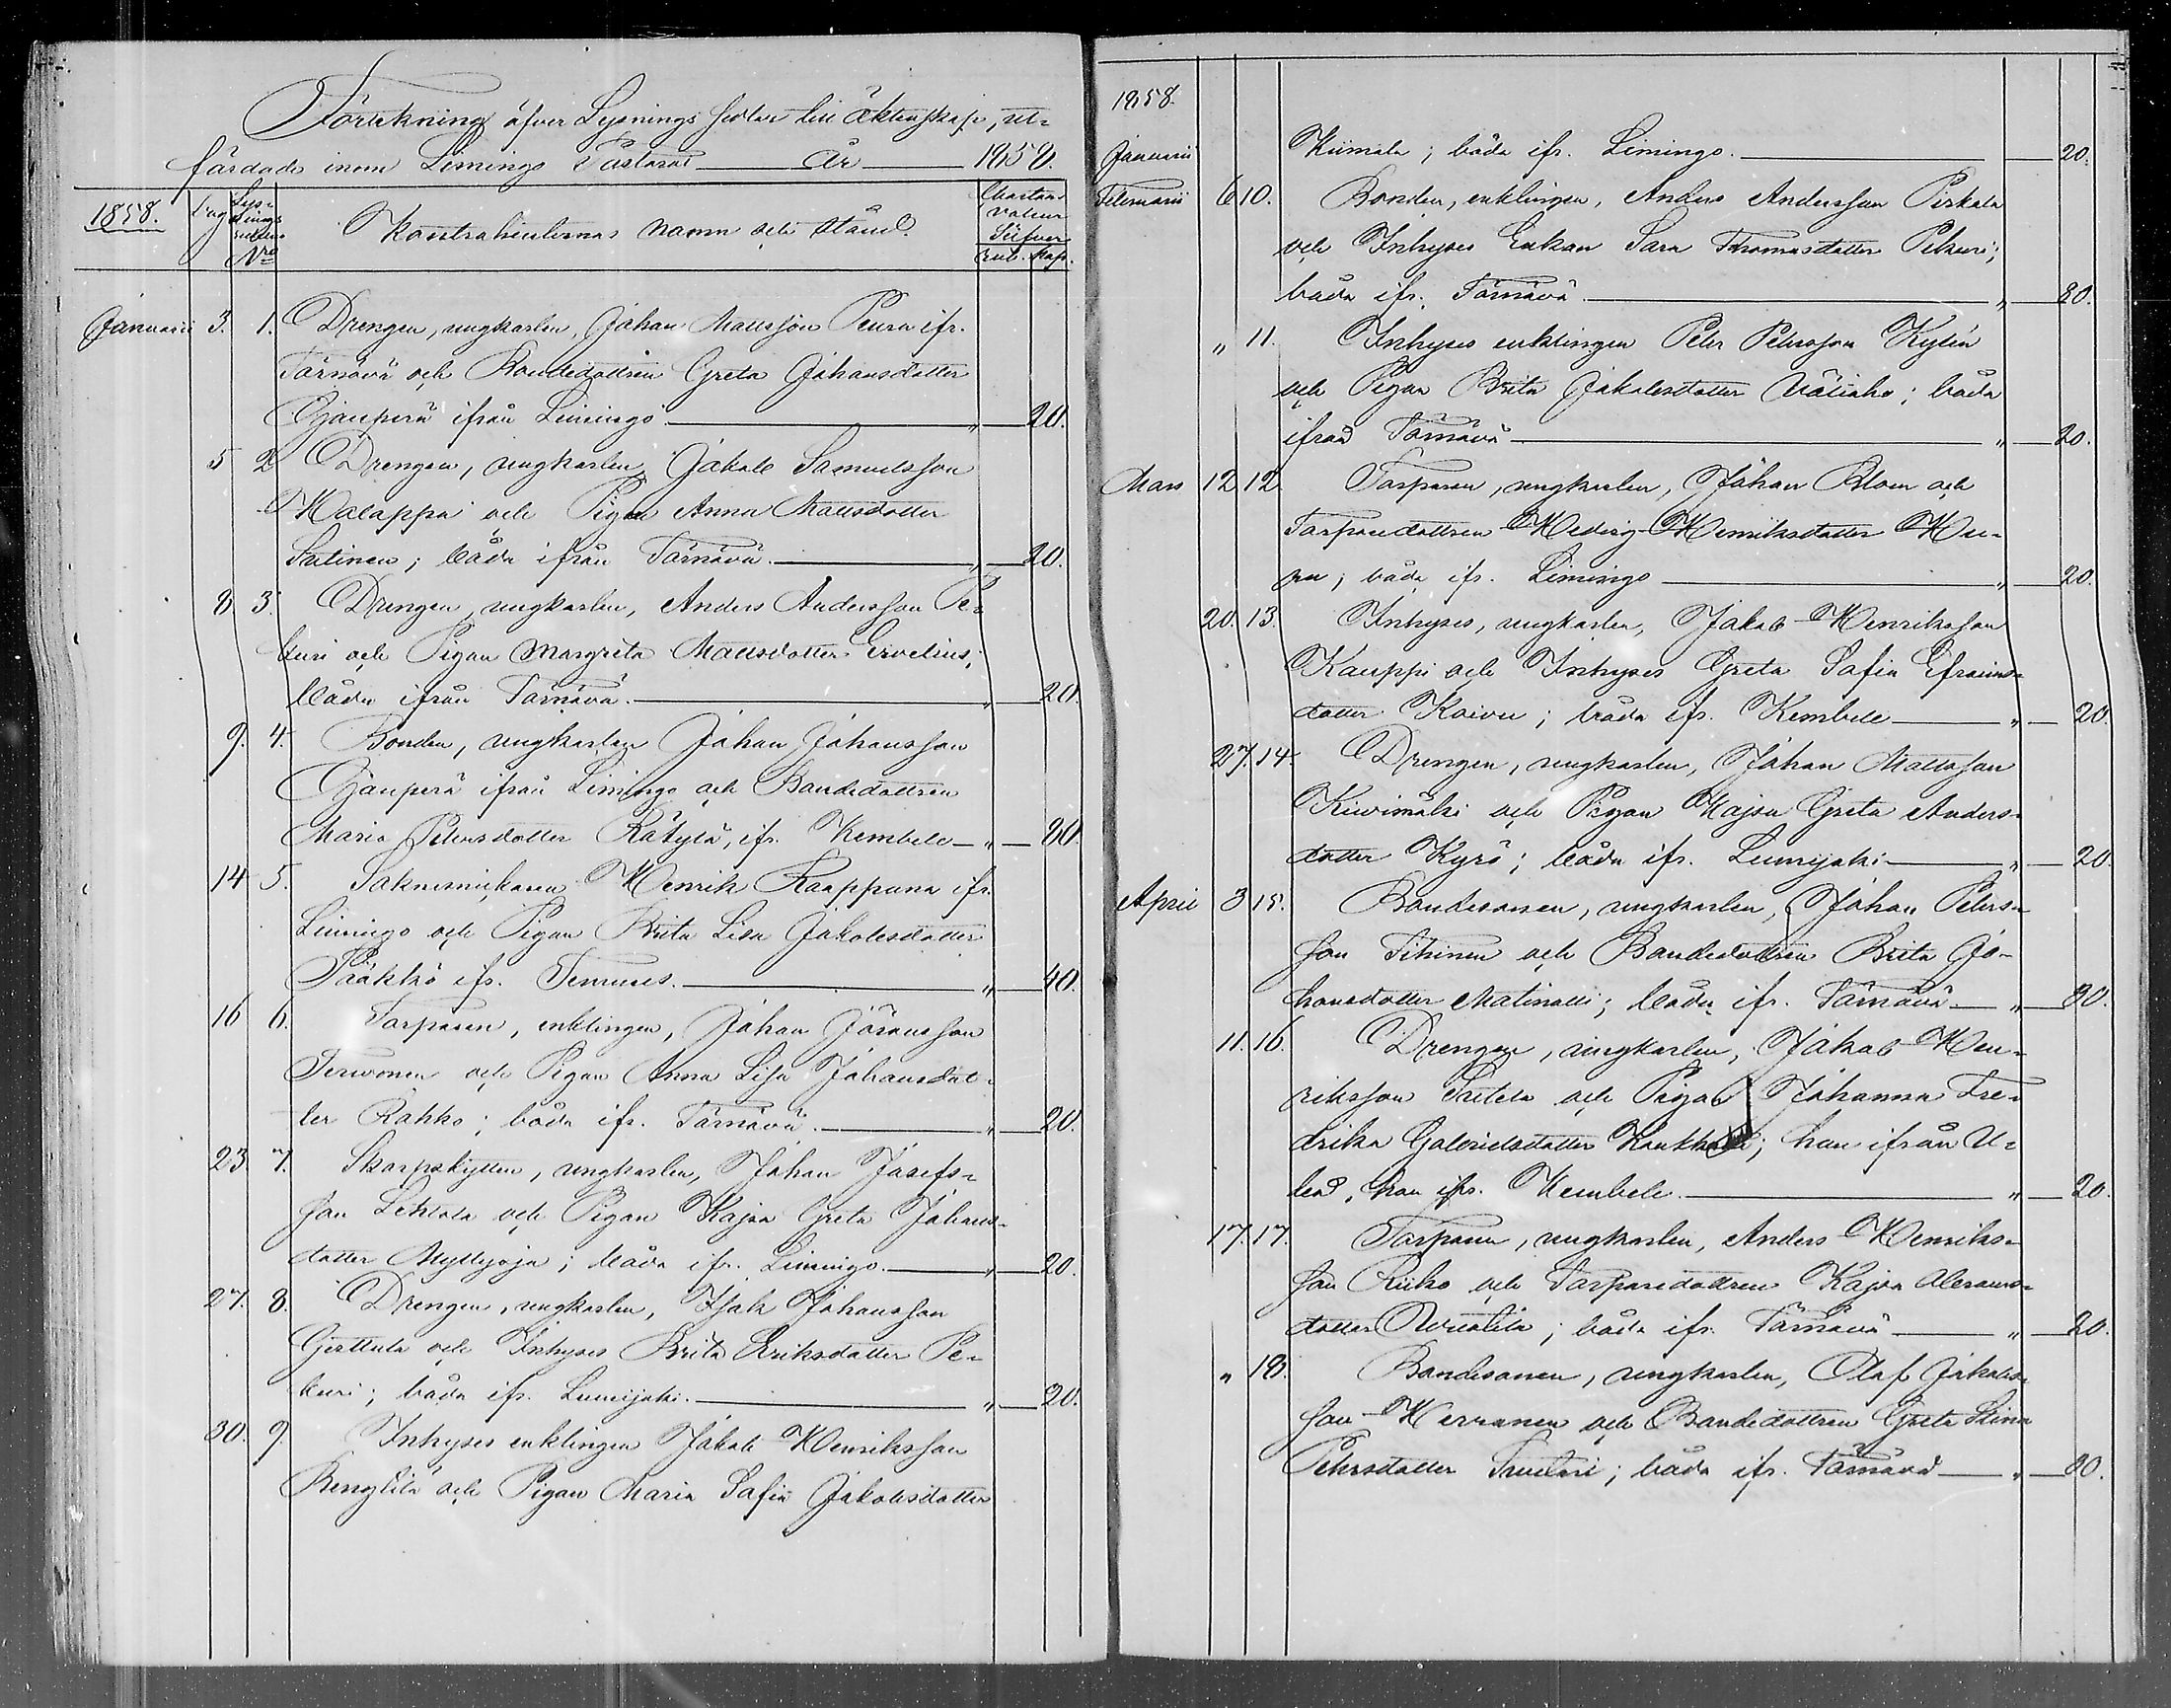 Förtekning öfver Lysnings sedlar till äktenskap, ut-
färdade inom Limingo Pastorat — År — 1858.
1858. Dag Lys-nings sedlens Nro Kontrahenternas namn och stånd. Chartans valeur Silfver Rub. Kop.
Januarii 3. 1. Drengen, ungkarlen, Johan Mattsson Peura ifr.
Tärnävä och Bondedottren Greta Johansdotter
Ojanperä ifrån Limingo — " — 20.
5 2 Drengen, ungkarlen, Jakob Samuelsson
Halappa och Pigan Anna Mattsdotter
Sutinen; båda ifrån Tärnävä. — " — 20.
8 3. Drengen, ungkarlen, Anders Andersson Pe-
kuri och Pigan Margreta Mattsdotter Ervelius;
båda ifrån Tärnävä. — " — 20.
9. 4. Bonden, ungkarlen Johan Johansson
Ojanperä ifrån Limingo och Bondedottren
Maria Petersdotter Rätylä, ifr. Kembele — " — 80.
14 5. Henrik Kaappana ifr.
Limingo och Pigan Brita Lisa Jakobsdotter
Pääkkö ifr. Temmes. — " — 40.
16 6. Torparen, enklingen, Johan Göransson
Terwonen och Pigan Anna Lisa Johansdot-
ter Rahko; båda ifr. Tärnävä. — " — 20.
23 7. Skarpskytten, ungkarlen, Johan Josefs-
son Lehtola och Pigan Kajsa Greta Johans-
dotter Myllyoja; båda ifr. Limingo. — " — 20.
27. 8. Drengen, ungkarlen, Isak Johansson
Gerttula och Inhyses Brita Eriksdotter Pe-
kuri; båda ifr. Lumijoki. — " — 20.
30. 9. Inhyses enklingen Jakob Henriksson
Rengilä och Pigan Maria Sofia Jakobsdotter
1858.
Januarii Kiimala; båda ifr. Limingo. — 20.
Februarii 6 10. Bonden, enklingen, Anders Andersson Pirkola
och Inhyses Enkan Sara Thomasdotter Pekuri;
båda ifr. Tärnävä. — " — 80.
" 11. Inhyses enklingen Peter Petersson Kylén
och Pigan Brita Jakobsdotter Väliaho; båda
ifrån Tärnävä — " — 20.
Mars 12 12. Torparen, ungkarlen, Johan Blom och
Torparedottren Hedvig Henriksdotter Hu-
; båda ifr. Limingo — " — 20.
20. 13. Inhyses, ungkarlen, Jakob Henriksson
Kauppi och Inhyses Greta Sofia Efraims-
dotter Koivu; båda ifr. Kembele — " — 20.
27. 14. Drengen, ungkarlen, Johan Mattsson
Kiwimäki och Pigan Kajsa Greta Anders-
dotter Kyrö; båda ifr. Lumijoki — " — 20.
April 3 15. Bondesonen, ungkarlen, Johan Peters-
son Tihinen och Bondedottren Brita Jo-
hansdotter Matinolli; båda ifr. Tärnävä — " — 80.
11. 16. Drengen, ungkarlen, Jakob Hen-
riksson och Pigan Johanna Fre-
drika Gabrielsdotter; han ifrån U-
leå, hon ifr. Kembele. — " — 20.
17. 17. Torparen, ungkarlen, Anders Henriks-
son Riiko och Torparedottren Kajsa Abrams-
dotter; båda ifr. Tärnävä — " — 20.
" 18. Bondesonen, ungkarlen, Olaf Jakobs-
son Herranen och Bondedottren Greta Stina
Petersdotter; båda ifr. Tärnävä — " — 80.